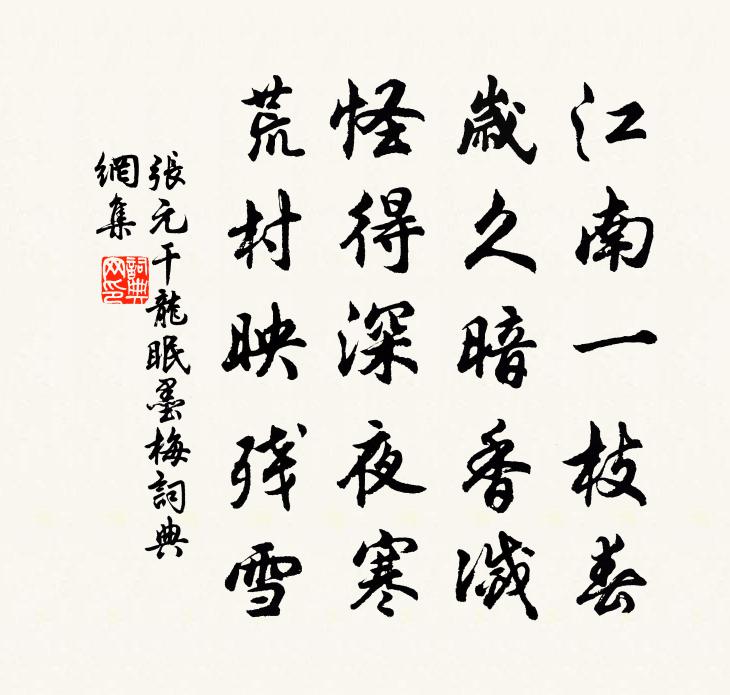 江南一枝春
歲久暗香滅
怪得深夜寒
荒村映残雪
張元干龍眠墨梅詞典
網集
詞典
网印